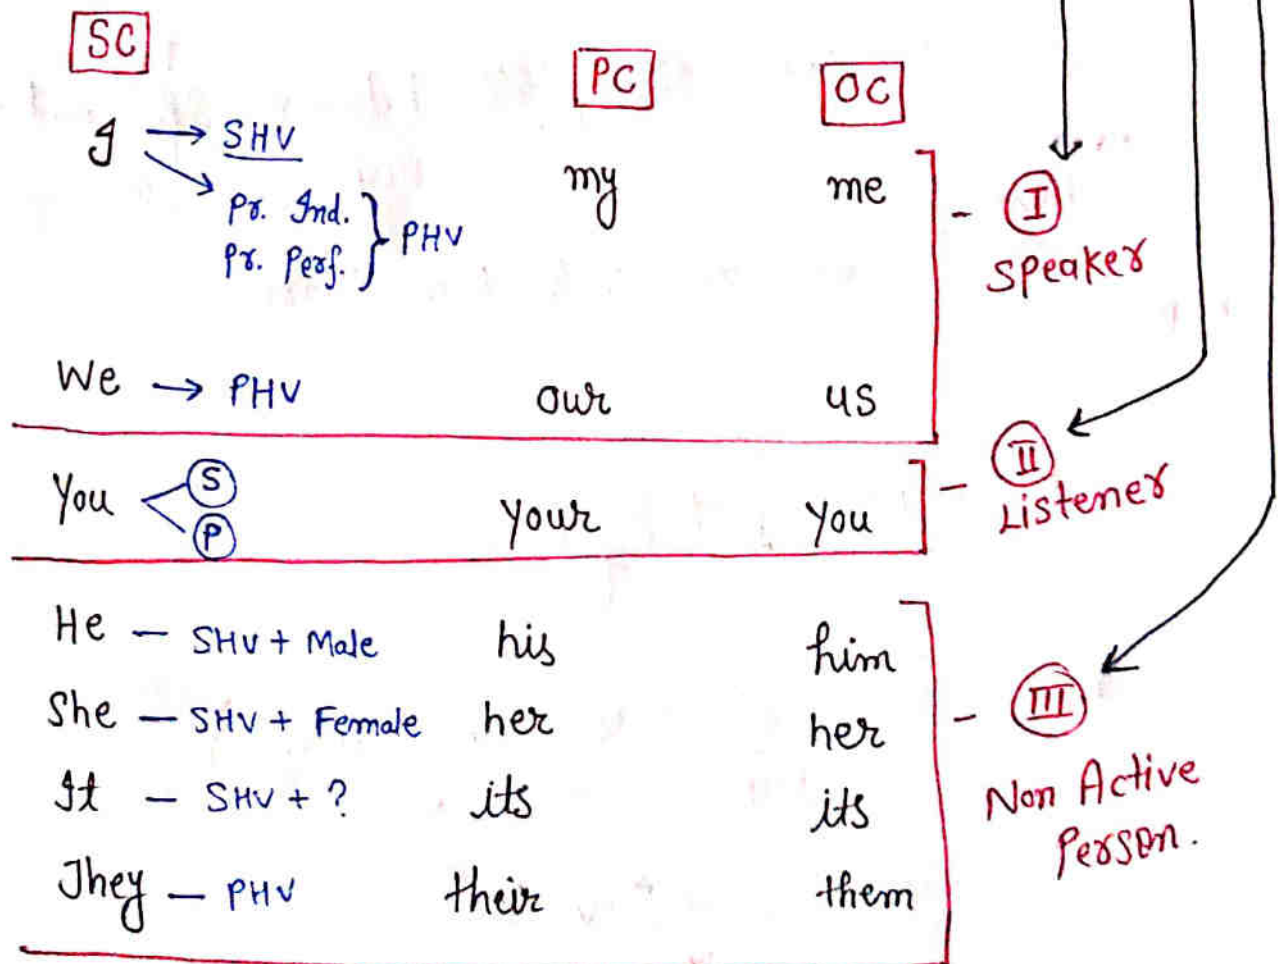 SC PC OC
I → SHV my me
Pr. Ind.
Pr. Perf. } PHV
- I
Speaker
We → PHV our us
You S your you
P
- II
Listener
He — SHV + Male his him
She — SHV + Female her her
It — SHV + ? its its
They — PHV their them
- III
Non Active
Person.